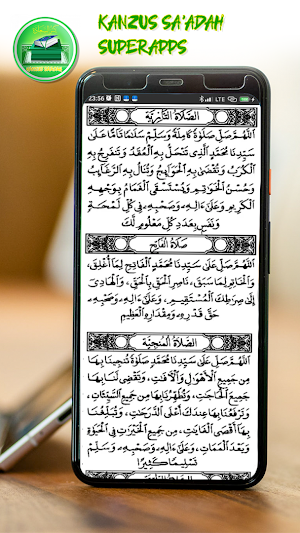 KANZUS SA'ADAH
SUPERADDS
23:56
LTE
الصَّلَاةُ النَّارِيَّة
اَللّٰهُمَّ صَلِّ صَلَوٰةً كَامِلَةً وَسَلِّمْ سَلَامًا تَامًّا عَلَىٰ
سَيِّدِنَا مُحَمَّدٍ الَّذِي تَنْحَلُّ بِهِ الْعُقَدُ وَتَنْفَرِجُ بِهِ
الْكُرَبُ وَتُقْضَىٰ بِهِ الْحَوَائِجُ وَتُنَالُ بِهِ الرَّغَائِبُ
وَحُسْنُ الْخَوَاتِمِ وَيُسْتَسْقَى الْغَمَامُ بِوَجْهِهِ
الْكَرِيمِ وَعَلَىٰ ءَالِهِ وَصَحْبِهِ فِي كُلِّ لَمْحَةٍ
وَنَفَسٍ بِعَدَدِ كُلِّ مَعْلُومٍ لَكَ
صَلَاةُ الْفَاتِحِ
اَللّٰهُمَّ صَلِّ عَلَىٰ سَيِّدِنَا مُحَمَّدٍ الْفَاتِحِ لِمَا أُغْلِقَ،
وَالْخَاتِمِ لِمَا سَبَقَ، نَاصِرِ الْحَقِّ بِالْحَقِّ، وَالْهَادِي
إِلَىٰ صِرَاطِكَ الْمُسْتَقِيمِ، وَعَلَىٰ ءَالِهِ وَصَحْبِهِ
حَقَّ قَدْرِهِ وَمِقْدَارِهِ الْعَظِيمِ
الصَّلَاةُ الْمُنْجِيَة
اَللّٰهُمَّ صَلِّ عَلَىٰ سَيِّدِنَا مُحَمَّدٍ صَلَوٰةً تُنْجِينَا بِهَا
مِنْ جَمِيعِ الْأَهْوَالِ وَالْآفَاتِ، وَتَقْضِي لَنَا بِهَا
جَمِيعَ الْحَاجَاتِ، وَتُطَهِّرُنَا بِهَا مِنْ جَمِيعِ السَّيِّئَاتِ،
وَتَرْفَعُنَا بِهَا عِنْدَكَ أَعْلَى الدَّرَجَاتِ، وَتُبَلِّغُنَا
بِهَا أَقْصَى الْغَايَاتِ، مِنْ جَمِيعِ الْخَيْرَاتِ فِي الْحَيَوٰةِ
وَبَعْدَ الْمَمَاتِ، وَعَلَىٰ ءَالِهِ وَصَحْبِهِ وَسَلِّمْ
تَسْلِيمًا كَثِيرًا